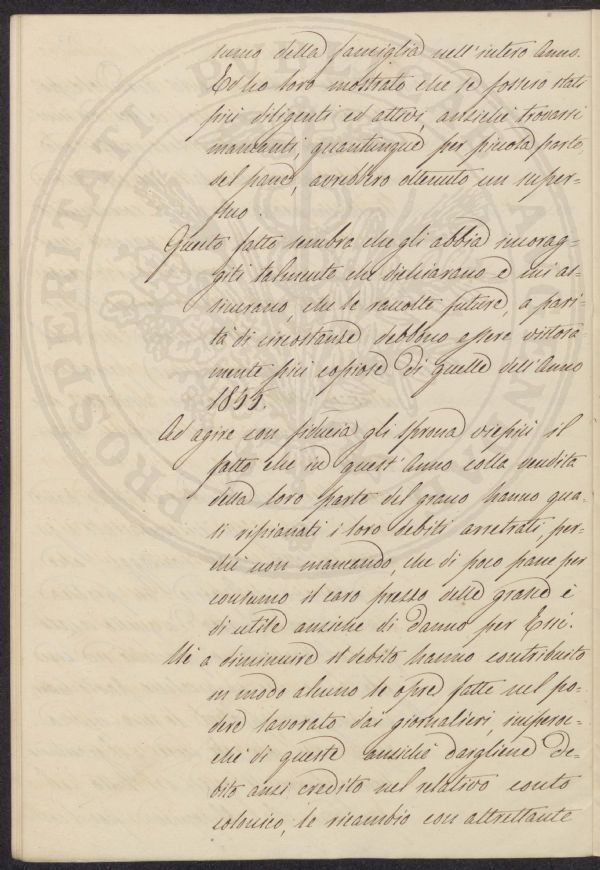 sumo della famiglia nell'intero Anno.
Ed ho loro mostrato che se fossero stati
più diligenti ed attivi, anziché trovarsi
mancanti, quantunque per piccola parte,
del pane, avrebbero ottenuto un super=
fluo.
Questo fatto sembra che gli abbia incorag=
giti talmente che dichiarano e mi as=
sicurano, che le raccolte future, a pari=
tà di circostanze debbono essere vistosa
mente più copiose di quelle dell'Anno
1855.
Ad agire con fiducia gli sprona viepiù il
fatto che in quest'Anno colla vendita
della loro parte del grano hanno qua=
si ripianati i loro debiti arretrati, per=
chè non mancando, che di poco pane per
consumo il caro prezzo delle grasce è
di utile anziche di danno per Essi.
Nè a diminuire il debito hanno contribuito
in modo alcuno le opre fatte nel po=
dere lavorato dai giornalieri, imperoc=
chè di queste anzichè dargliene de=
bito anzi credito nel relativo conto
colonico, le ricambio con altrettante
PROSPERITATI PUBLICAE